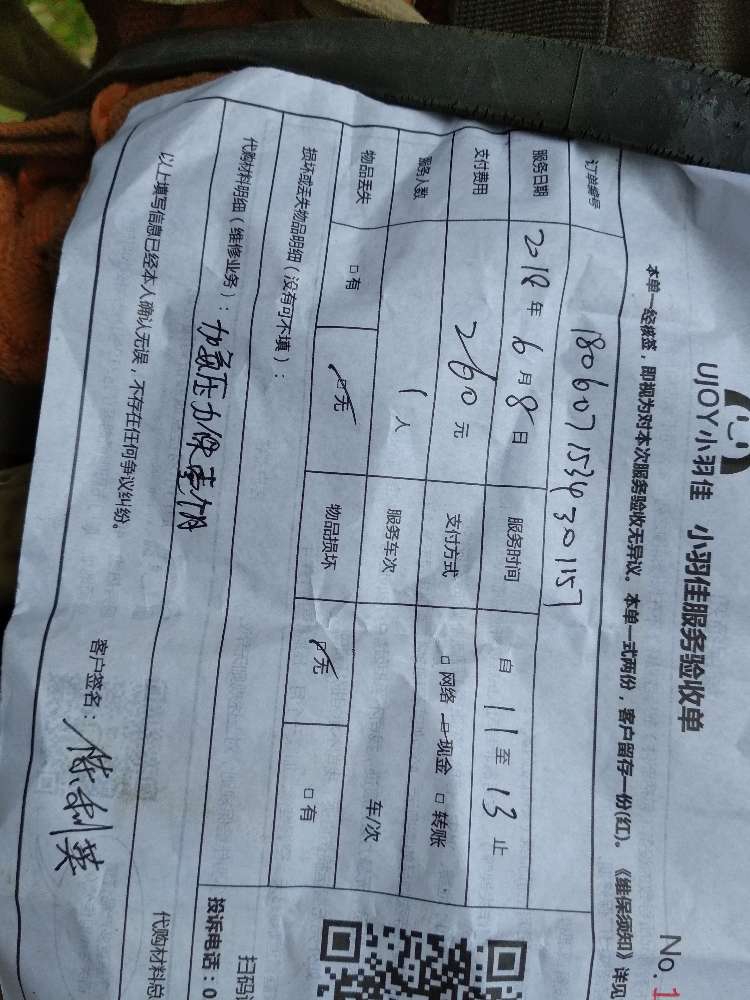 UJOY小羽佳 小羽佳服务验收单
No.1
本单一经核签，即视为对本次服务验收无异议。本单一式两份，客户留存一份(红)。《维保须知》详见
订单编号 180607153430157
服务日期 2018年6月8日 服务时间 自11至13止
支付费用 260元 支付方式 □网络 ☑现金 □转账
服务人数 1人 服务车次 车/次
物品丢失 □有 ☑无 物品损坏 ☑无 □有
损坏或丢失物品明细（没有可不填）：
代购材料明细（维修业务）：
代购材料总
以上填写信息已经本人确认无误，不存在任何争议纠纷。
客户签名：
扫码
投诉电话：0